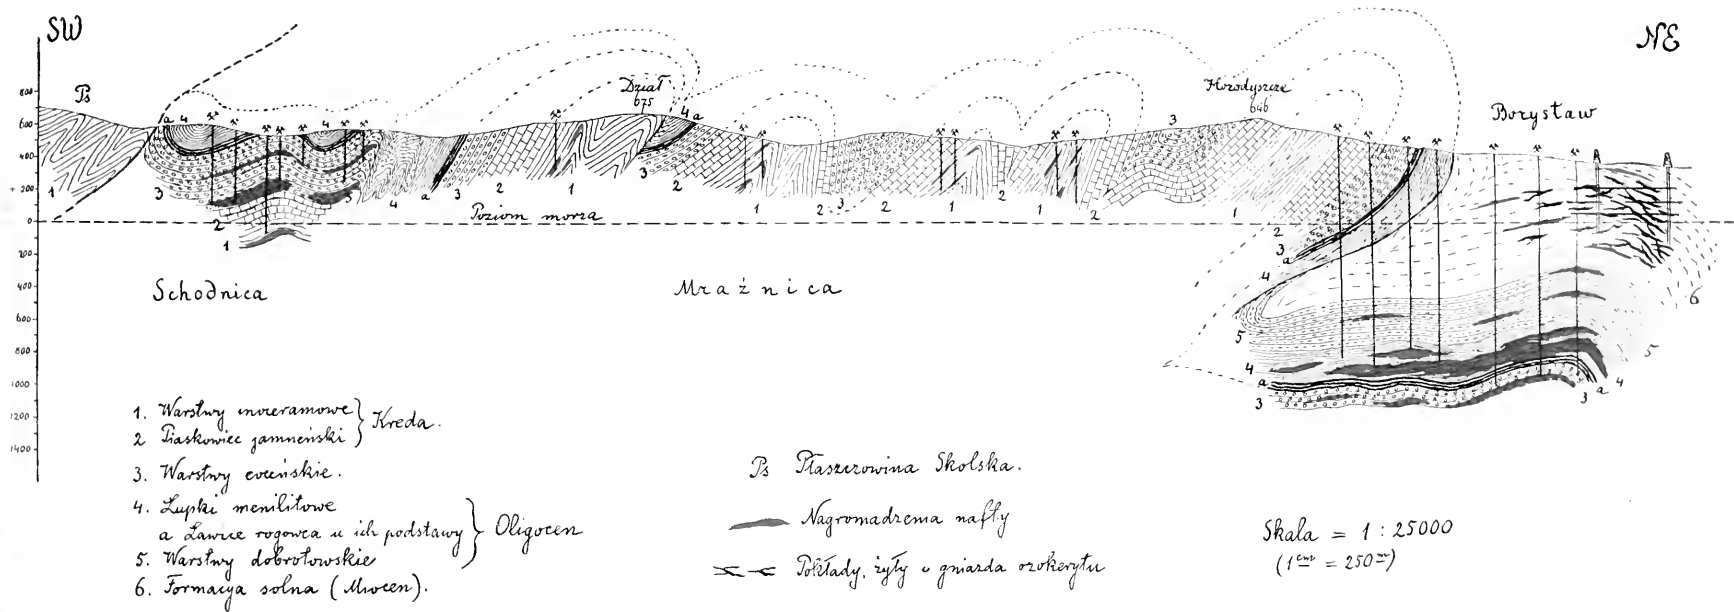 SW
NE
Ps
Dział
675
Horodyszcze
646
Borysław
800
600
400
+ 200
0
200
400
600
800
1000
1200
1400
Poziom morza
Schodnica
Mraźnica
1. Warstwy inoceramowe
2 Piaskowiec jamneński
Kreda.
3. Warstwy eoceńskie.
4. Łupki menilitowe
a Ławice rogowca u ich podstawy
5. Warstwy dobrotowskie
Oligocen
6. Formacya solna (Miocen).
Ps Płaszczowina Skolska.
Nagromadzenia nafty
Pokłady, żyły i gniazda ozokerytu
Skala = 1 : 25000
(1 cm = 250 m)